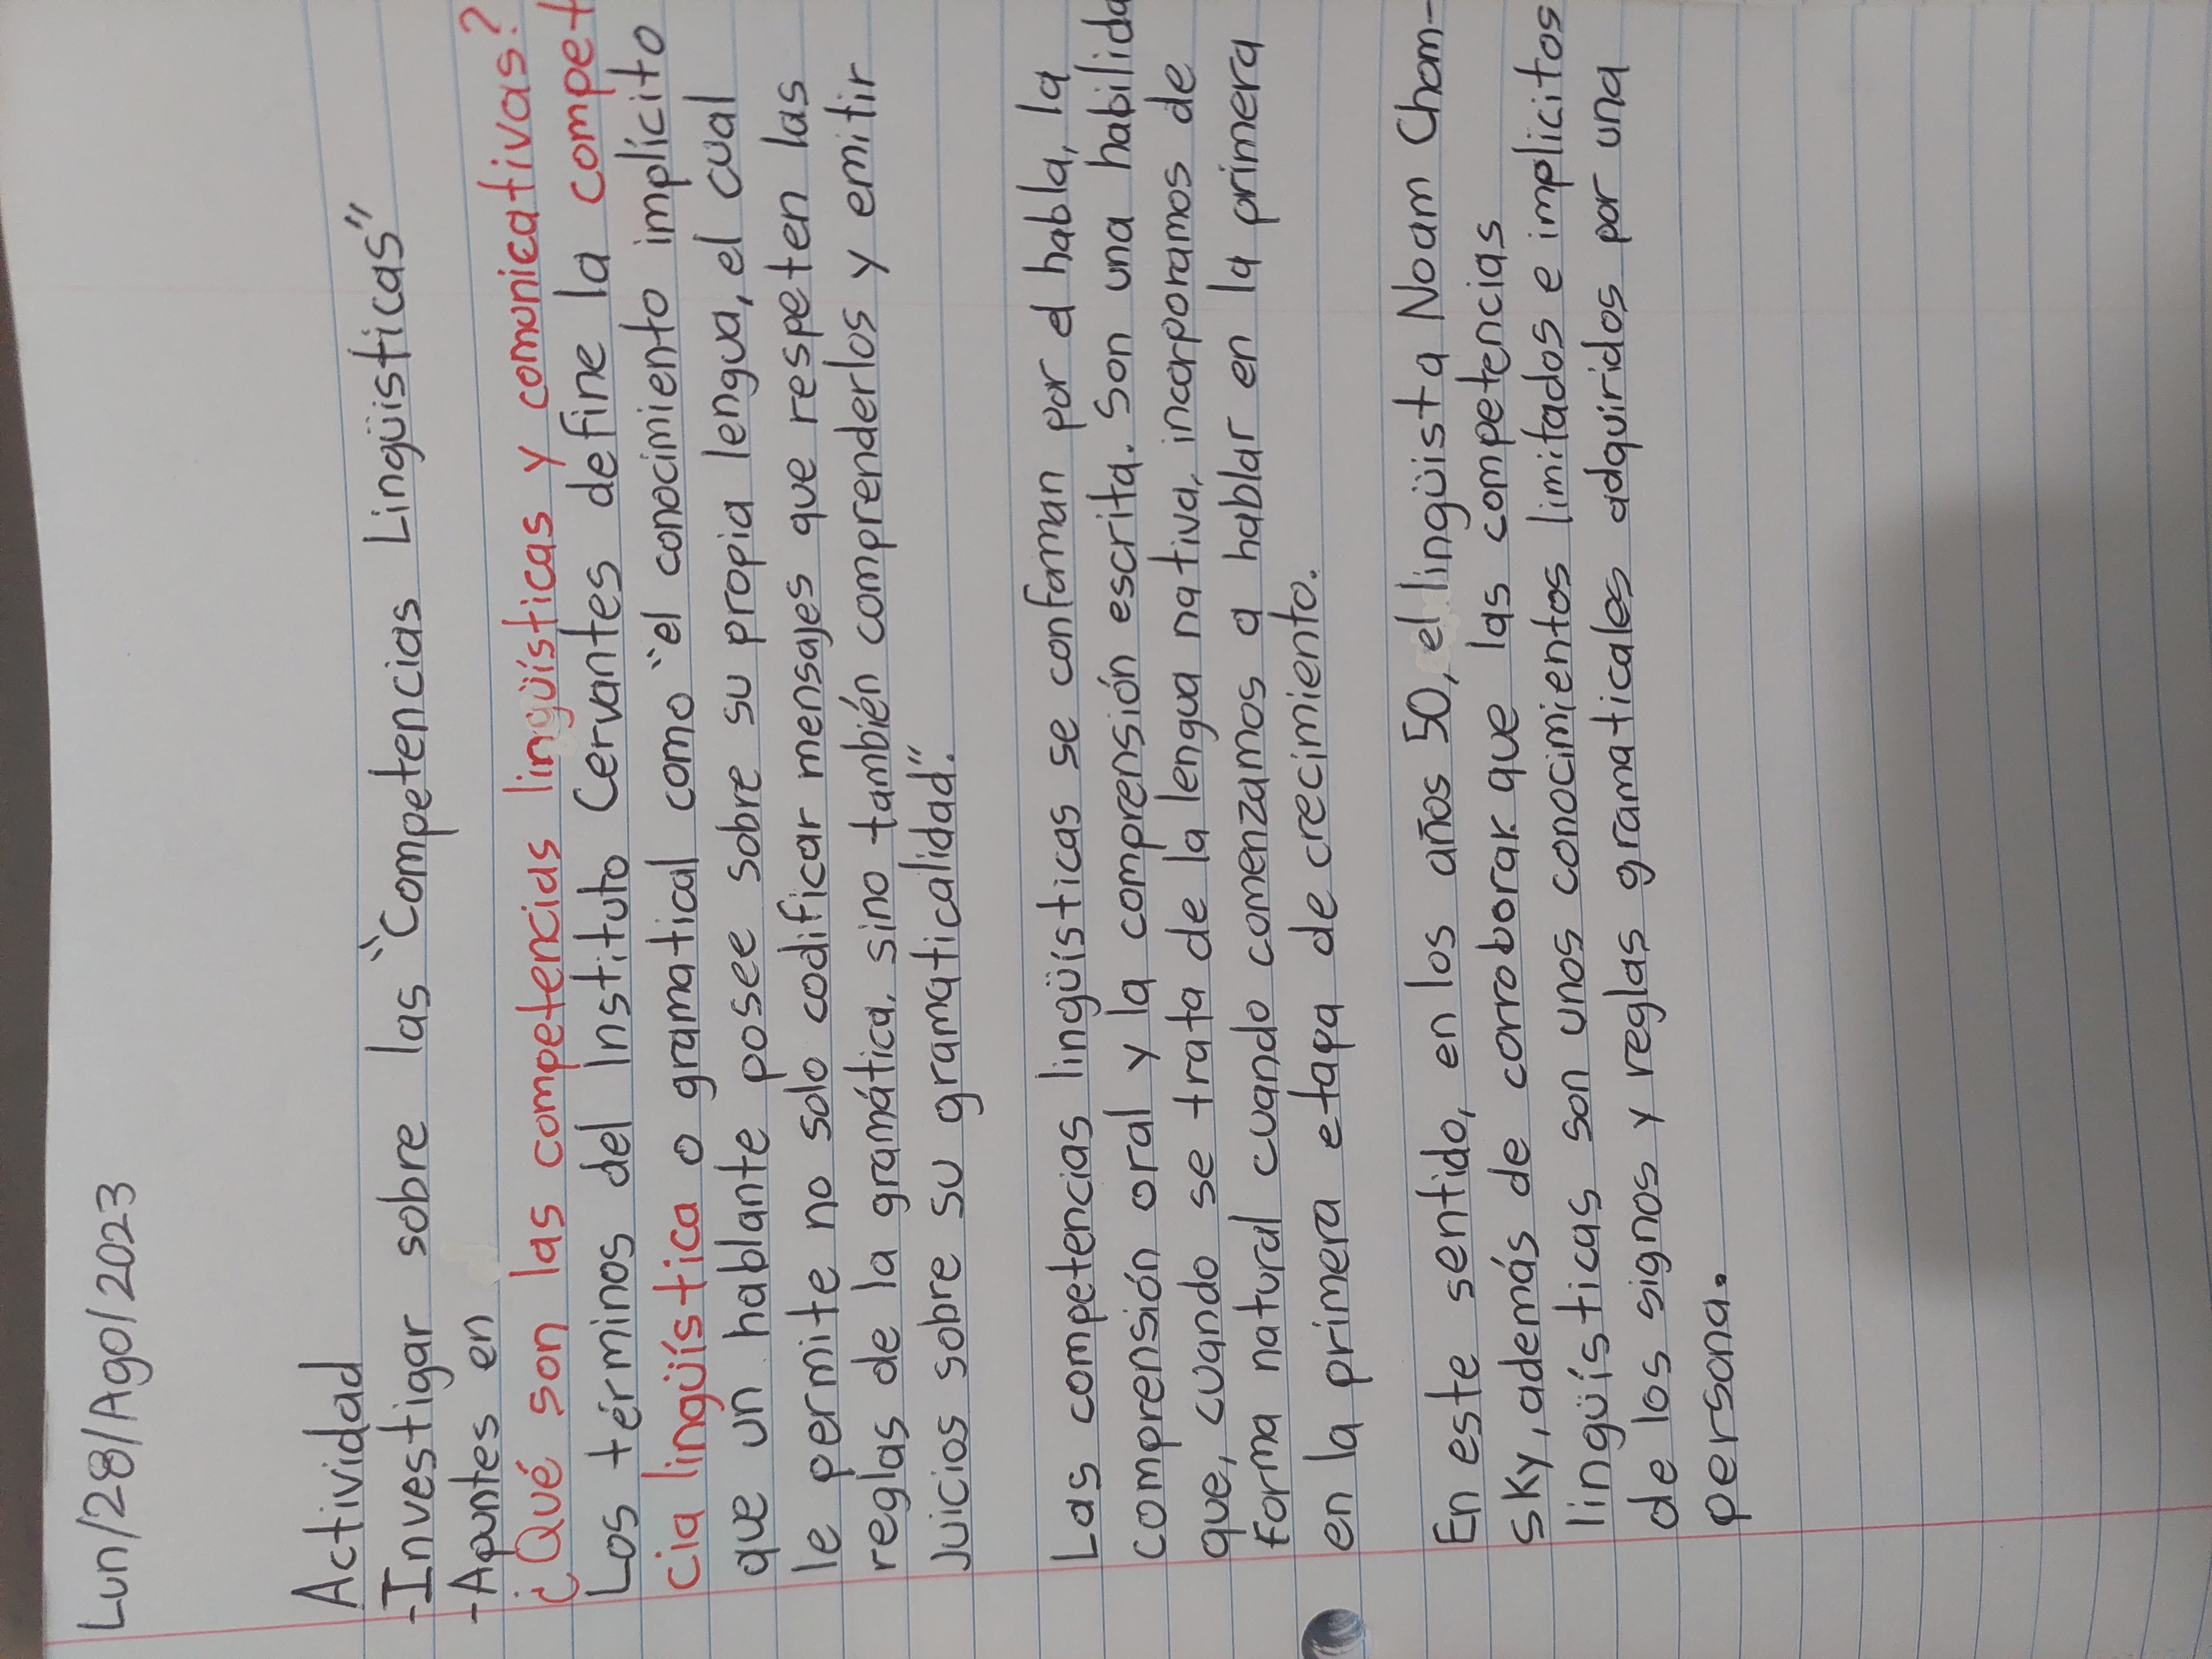 Lun/28/Ago/2023
Actividad
-Investigar sobre las "Competencias Lingüisticas"
-Apuntes en
¿Qué son las competencias lingüísticas y comunicativas?
Los términos del Instituto Cervantes define la compet
cia lingüística o gramatical como "el conocimiento implícito
que un hablante posee sobre su propia lengua, el cual
le permite no solo codificar mensajes que respeten las
reglas de la gramática, sino también comprenderlos y emitir
Juicios sobre su gramaticalidad".
Las competencias lingüísticas se conforman por el habla, la
comprensión oral y la comprensión escrita. Son una habilida
que, cuando se trata de la lengua nativa, incorporamos de
forma natural cuando comenzamos a hablar en la primera
en la primera etapa de crecimiento.
En este sentido, en los años 50, el lingüista Noam Chom-
sky, además de corroborar que las competencias
lingüísticas son unos conocimientos limitados e implicitos
de los signos y reglas gramaticales adquiridos por una
persona.